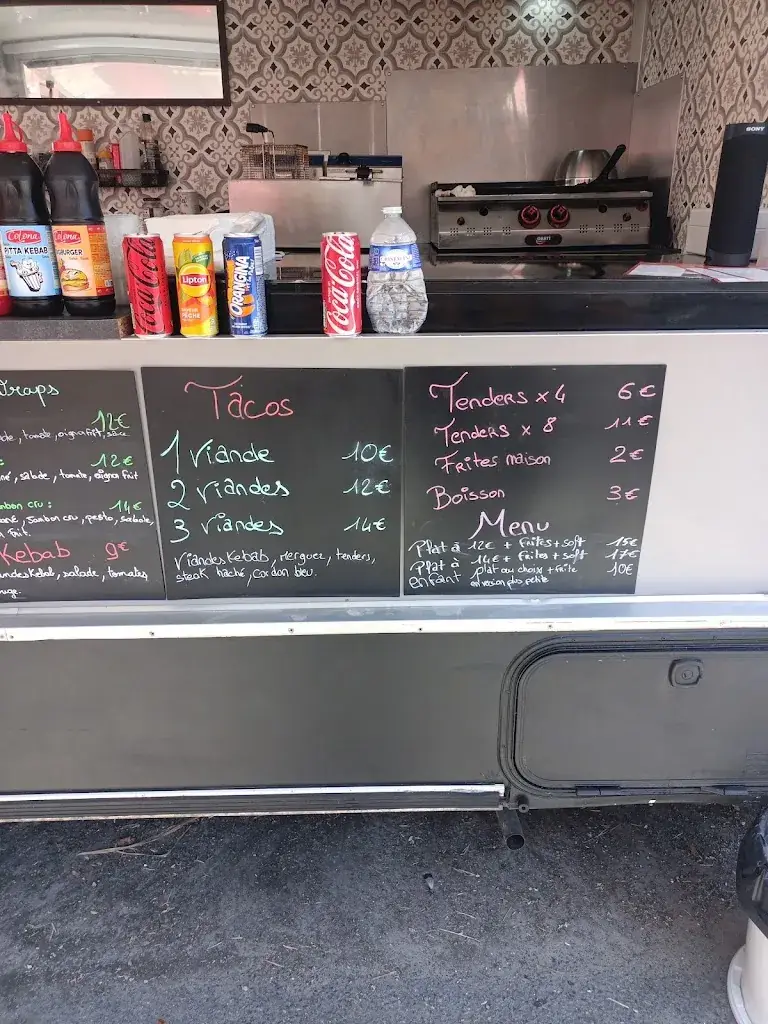 SONY
Colona
PITTA KEBAB
Colona
BURGER
Coca-Cola
Lipton
ORANGINA
Coca-Cola
CRISTALINE
12€
tomate, oignon frit,
12€
salade, tomate, oignon frit
14€
Jambon cru, pesto, salade,
frit.
Kebab 9€
salade, tomates,
Tacos
1 Viande 10€
2 Viandes 12€
3 Viandes 14€
Viandes Kebab, merguez, tenders,
steak haché, cordon bleu.
Tenders x 4 6€
Tenders x 8 11€
Frites maison 2€
Boisson 3€
Menu
Plat à 12€ + frites + soft 15€
Plat à 14€ + frites + soft 17€
enfant plat au choix + frite 10€
en version plus petite